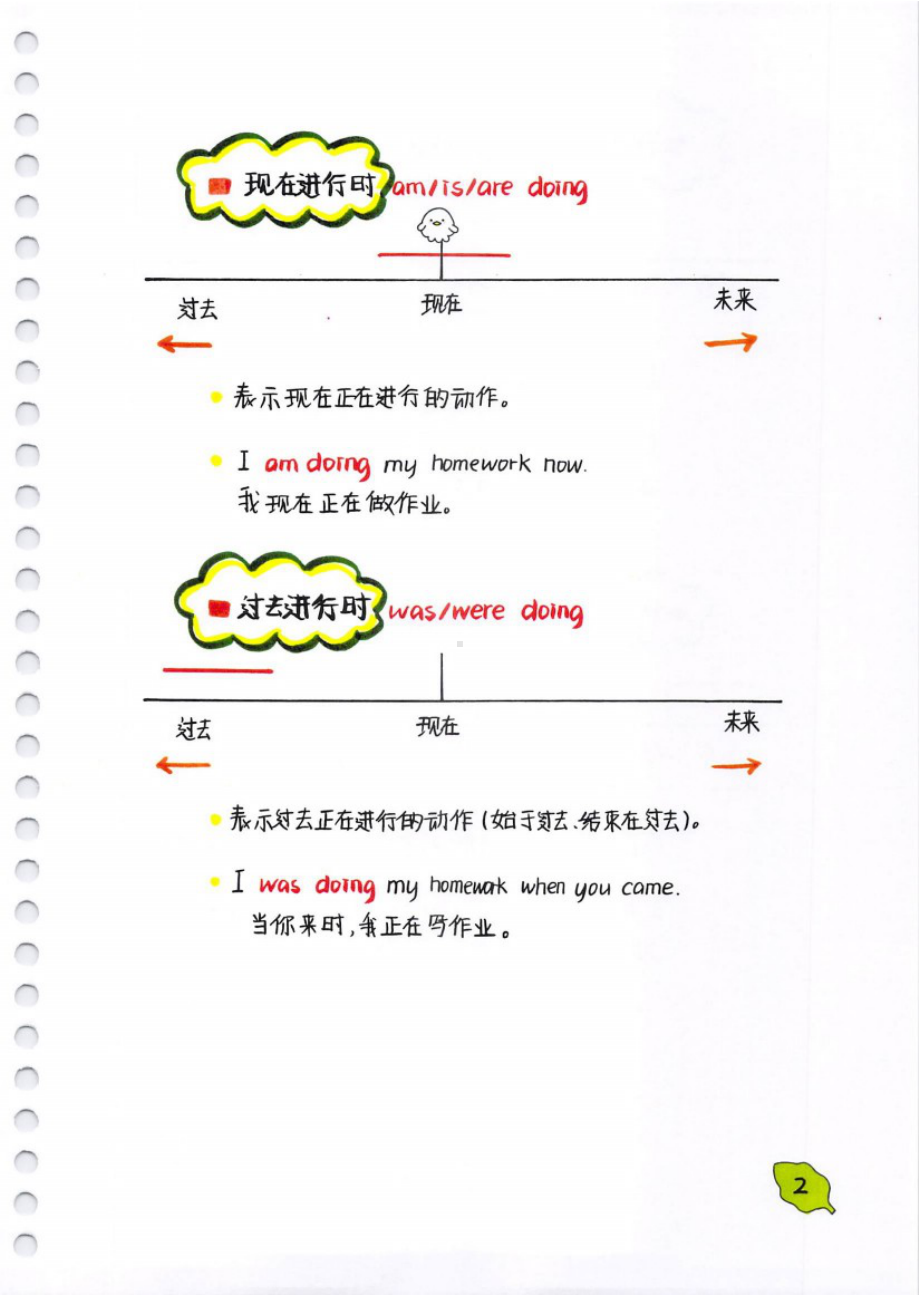 现在进行时 am/is/are doing
过去 现在 未来
表示现在正在进行的动作。
I am doing my homework now.
我现在正在做作业。
过去进行时 was/were doing
过去 现在 未来
表示过去正在进行的动作(始于过去、结束在过去)。
I was doing my homework when you came.
当你来时,我正在写作业。
2